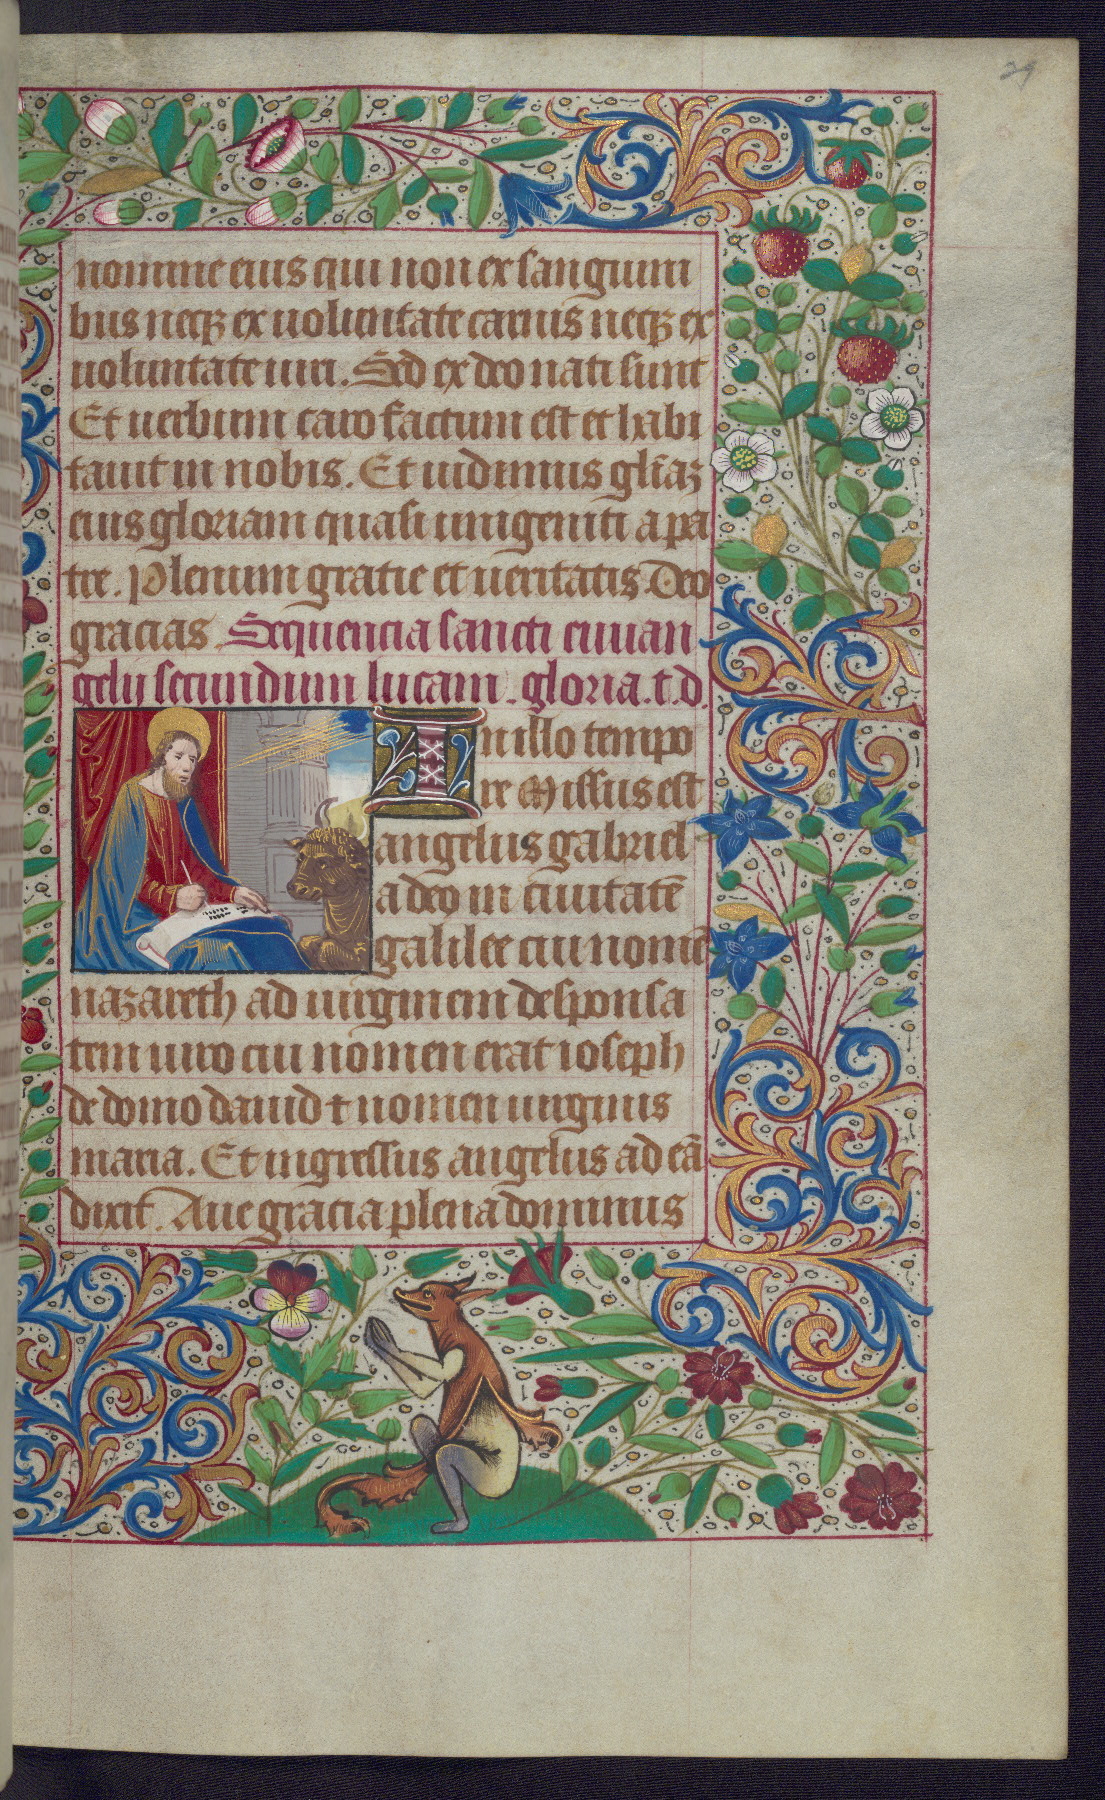 29
nomine eius qui non ex sanguini
bus neq₃ ex uoluntate carnis neq₃ ex
uoluntate uiri. Sed ex deo nati sunt
Et uerbum caro factum est et habi
tauit in nobis. Et uidimus gl̄iaꝫ
eius gloriam quasi unigeniti a pa
tre. Plenum gratie et ueritatis. Deo
gracias. Sequencia sancti euuan
gelii secundum lucam. gloria. t. d.
In illo tempo
re Missus est
angelus gabriel
a deo in ciuitatē
galilee cui nomē
nazareth ad uirginem desponsa
tem uiro cui nomen erat ioseph
de domo dauid ⁊ nomen uirginis
maria. Et ingressus angelus ad eā
dixit. Aue gracia plena dominus